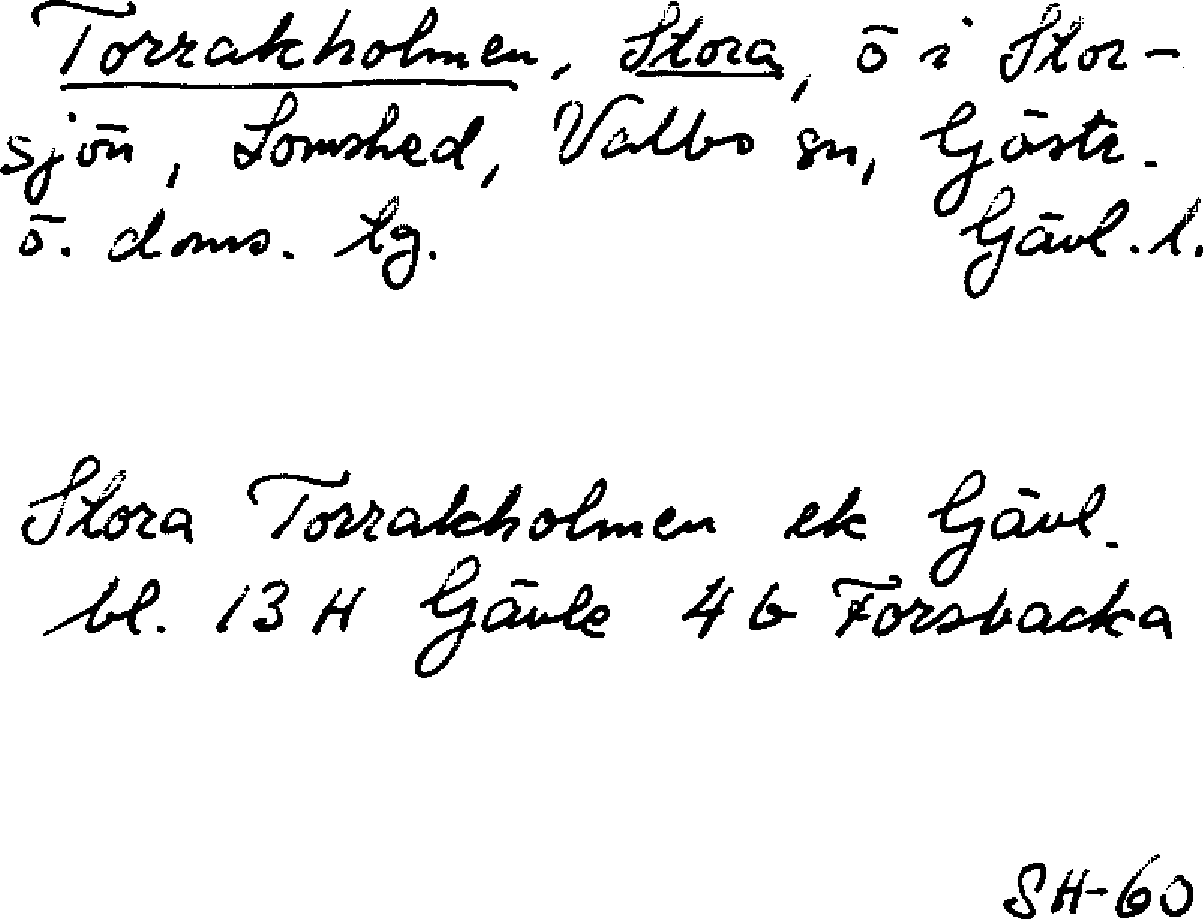 Torrakholmen, Stora, ö i Stor-
sjön, Lomshed, Valbo sn, Gästr.
ö. doms. lg. Gävl. l.
Stora Torrakholmen ek Gävl.
bl. 13 H Gävle 4 b Forsbacka
SH-60